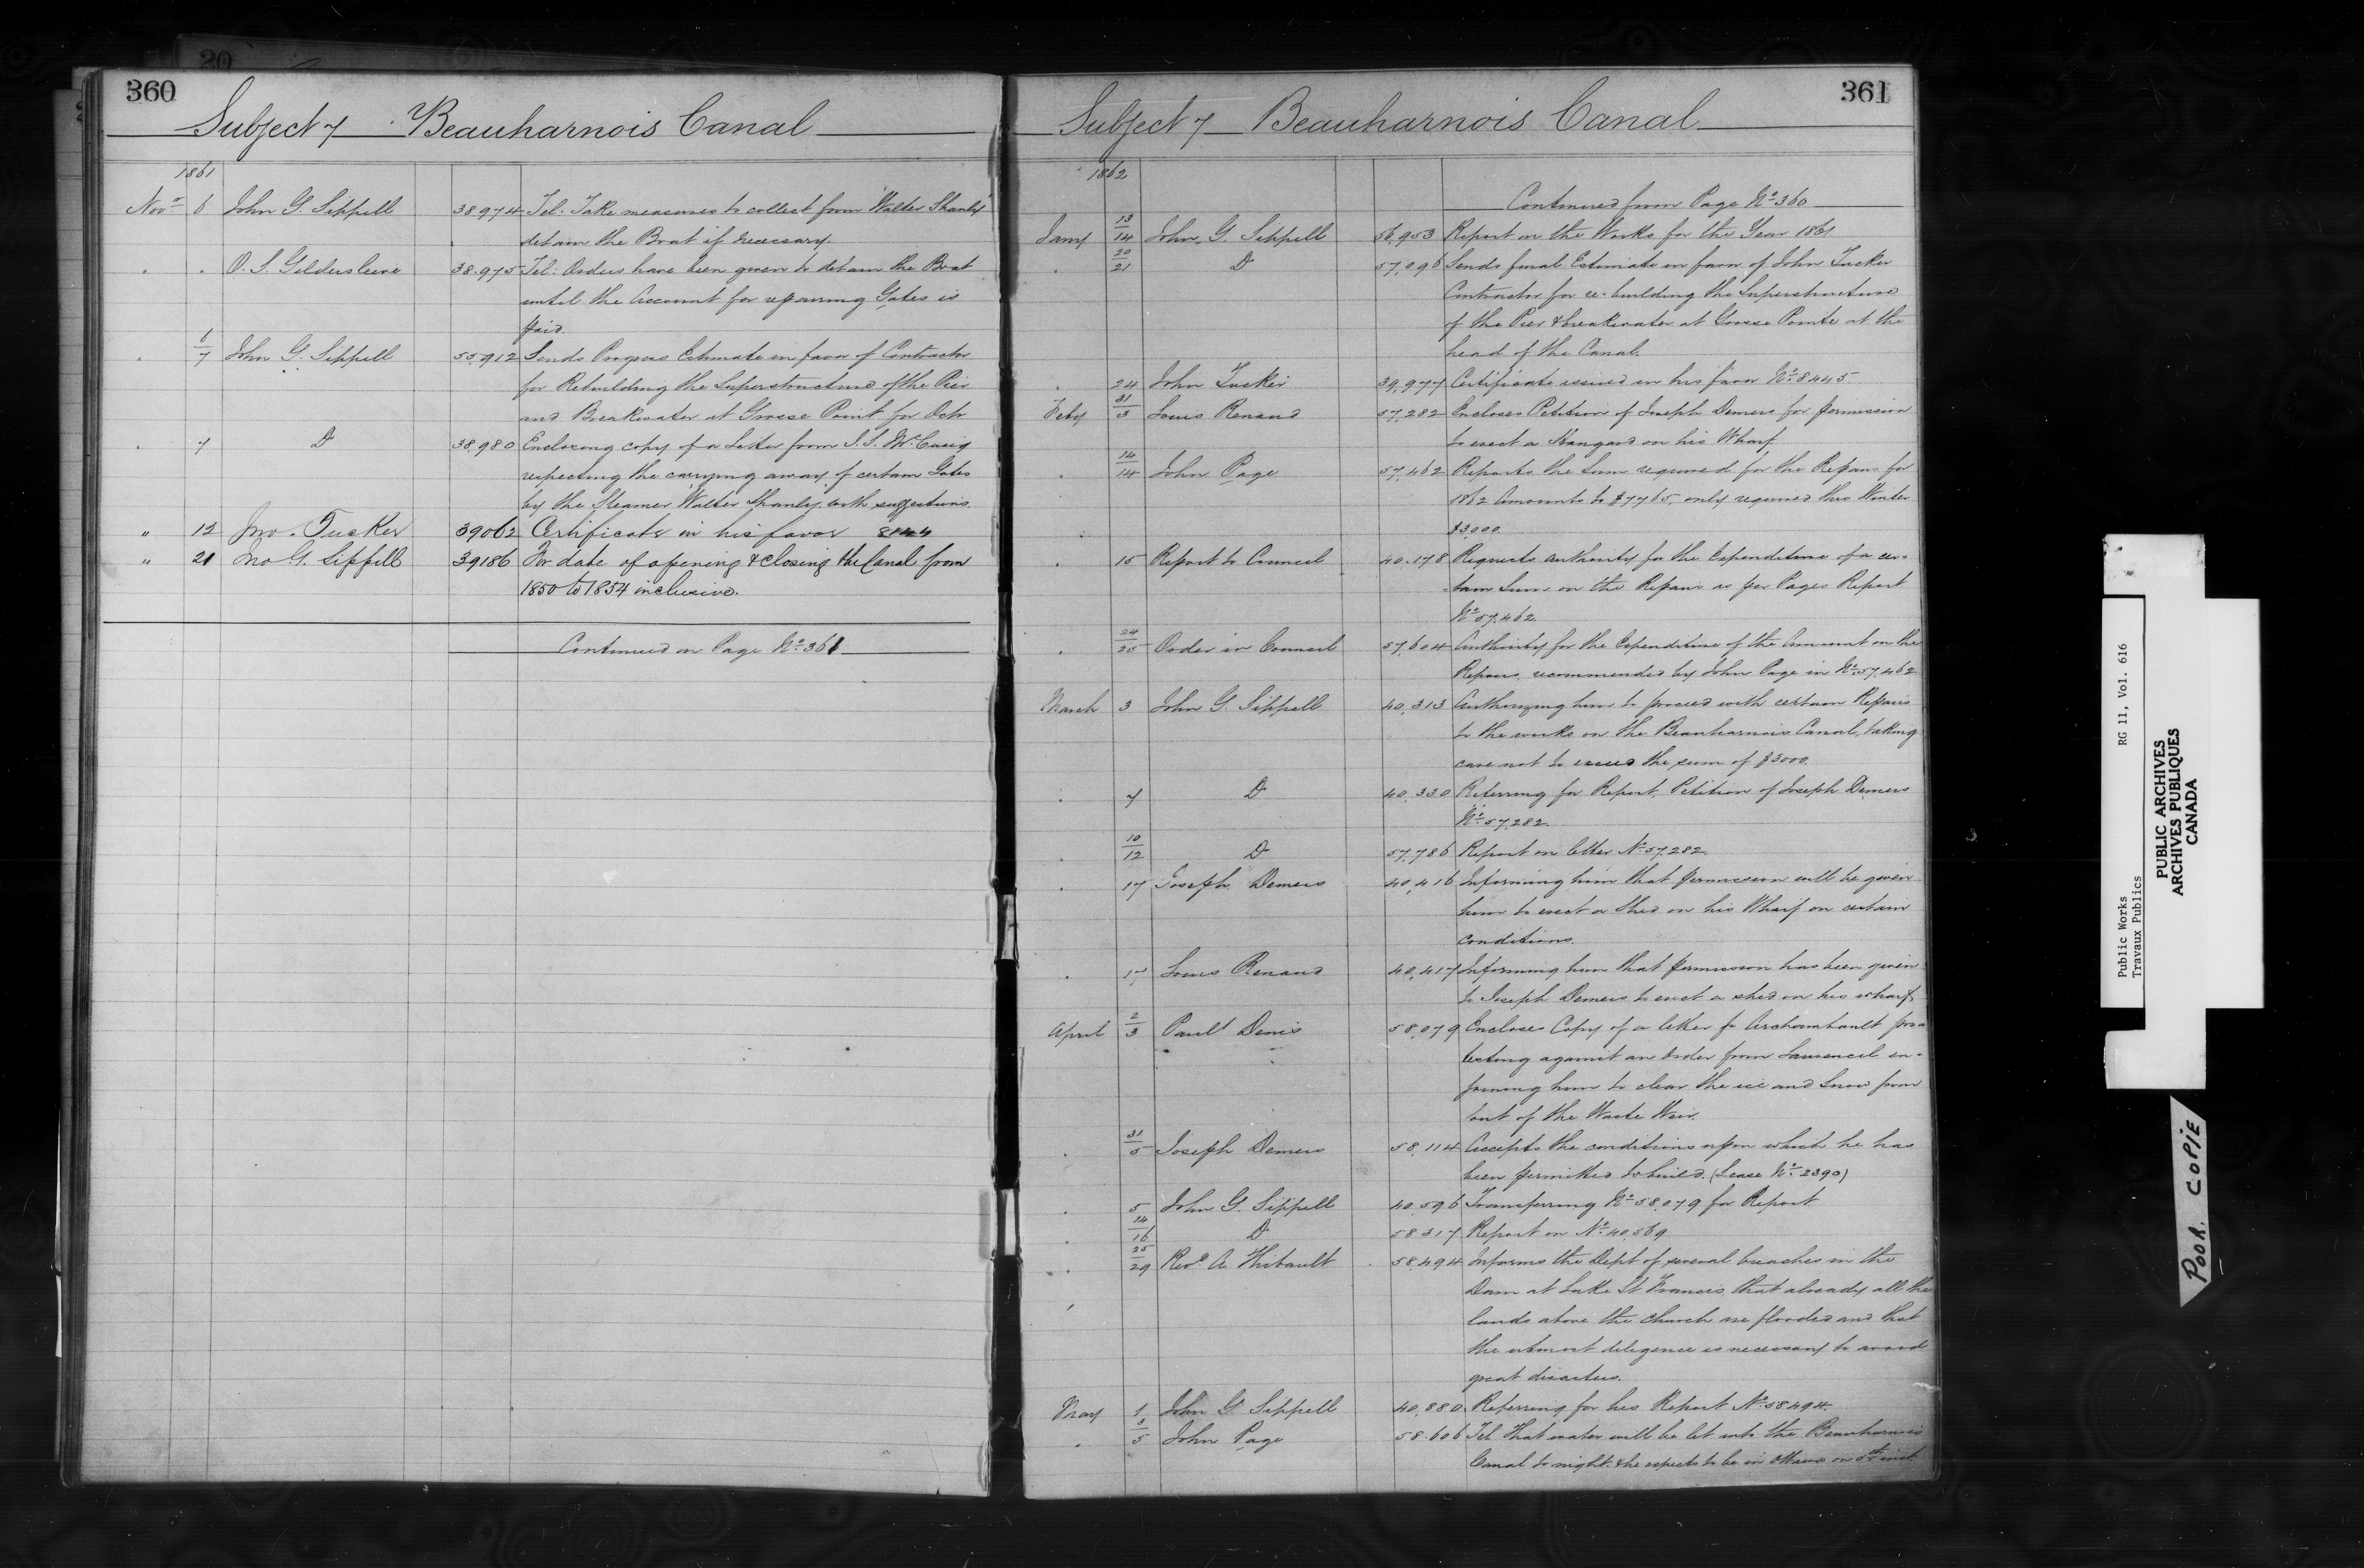 360
Subject 7 Beauharnois Canal
1861
Novr 6 John G. Sippell 38.974 Tel: Take measures to collect from "Walter Shanly"
detain the Boat if necessary.
" " O. S. Gildersleeve 38.975 Tel: Orders have been given to detain the Boat
until the Account for repairing Gates is
paid.
" 6/7 John G. Sippell 55.912 Sends Progress Estimate in favor of Contractor
for Rebuilding the Superstructure of the Pier
and Breakwater at Grosse Point for Octr
" 7 Do 38.980 Enclosing copy of a Letter from S. S. McCuaig
respecting the carrying away of certain Gates
by the Steamer Walter Shanly with suggestions.
" 12 Jno. Tucker 39062 Certificate in his favor 8144
" 21 Jno G. Sippell 39186 For date of opening & closing the Canal from
1850 to 1854 inclusive.
Continued on Page No. 361
361
Subject 7 Beauharnois Canal
1862
Continued from Page No. 360
Jany 13/14 John G. Sippell 56,953 Report on the Works for the Year 1861.
" 20/21 Do 57,096 Sends final Estimate in favor of John Tucker
Contractor for re-building the Superstructure
of the Pier & breakwater at Grosse Pointe at the
head of the Canal.
" 24 John Tucker 39,977 Certificate issued in his favor No. 8445.
Feby 31/3 Louis Renaud 57,282 Encloses Petition of Joseph Demers for permission
to erect a Hangard on his Wharf
" 14/14 John Page 57,462 Reports the Sum required for the Repairs for
1862 Amounts to $7765, only required this Winter
$3,000.
" 15 Report to Council 40.178 Requests authority for the Expenditure of a cer-
tain Sum on the Repairs as per Pages Report
No. 57,462
" 24/25 Order in Council 57,604 Authority for the Expenditure of the Amount on the
Repairs, recommended by John Page in No. 57,462
March 3 John G. Sippell 40,313 Authorizing him to proceed with certain Repairs
to the works on the Beauharnois Canal, taking
care not to exceed the sum of $3000.
" 7 Do 40,330 Referring for Report, Petition of Joseph Demers
No. 57,282.
" 10/12 Do 57,786 Report on letter No 57.282.
" 17 Joseph Demers 40,416 Informing him that permission will be given
him to erect a Shed on his Wharf on certain
conditions.
" 17 Louis Renaud 40,417 Informing him that permission has been given
to Joseph Demers to erect a shed on his wharf.
April 2/3 Paul Denis 58,079 Encloses Copy of a letter fr Archambault pro-
testing against an order from Laurencel en-
joining him to clear the ice and Snow from
out of the Waste Weir.
" 31/5 Joseph Demers 58,114 Accepts the conditions upon which he has
been permitted to build. (Lease No. 2390)
" 5 John G. Sippell 40,596 Transferring No. 58,079 for Report
" 14/16 Do 58317 Report on No. 40,569
" 25/29 Revd. A. Thibault 58,494 Informs the Dept of several breaches in the
Dam at Lake St Francis, that already all the
lands above the Church are flooded and that
the utmost diligence is necessary to avoid
great disasters.
May 1 John G. Sippell 40,880 Referring for his Report No. 58494.
" 3/5 John Page 58.606 Tel. That water will be let into the Beauharnois
Canal to night. & he expects to be in Ottawa on 6th inst.
Public Works RG 11, Vol. 616
Travaux Publics
PUBLIC ARCHIVES
ARCHIVES PUBLIQUES
CANADA
POOR COPIE
20